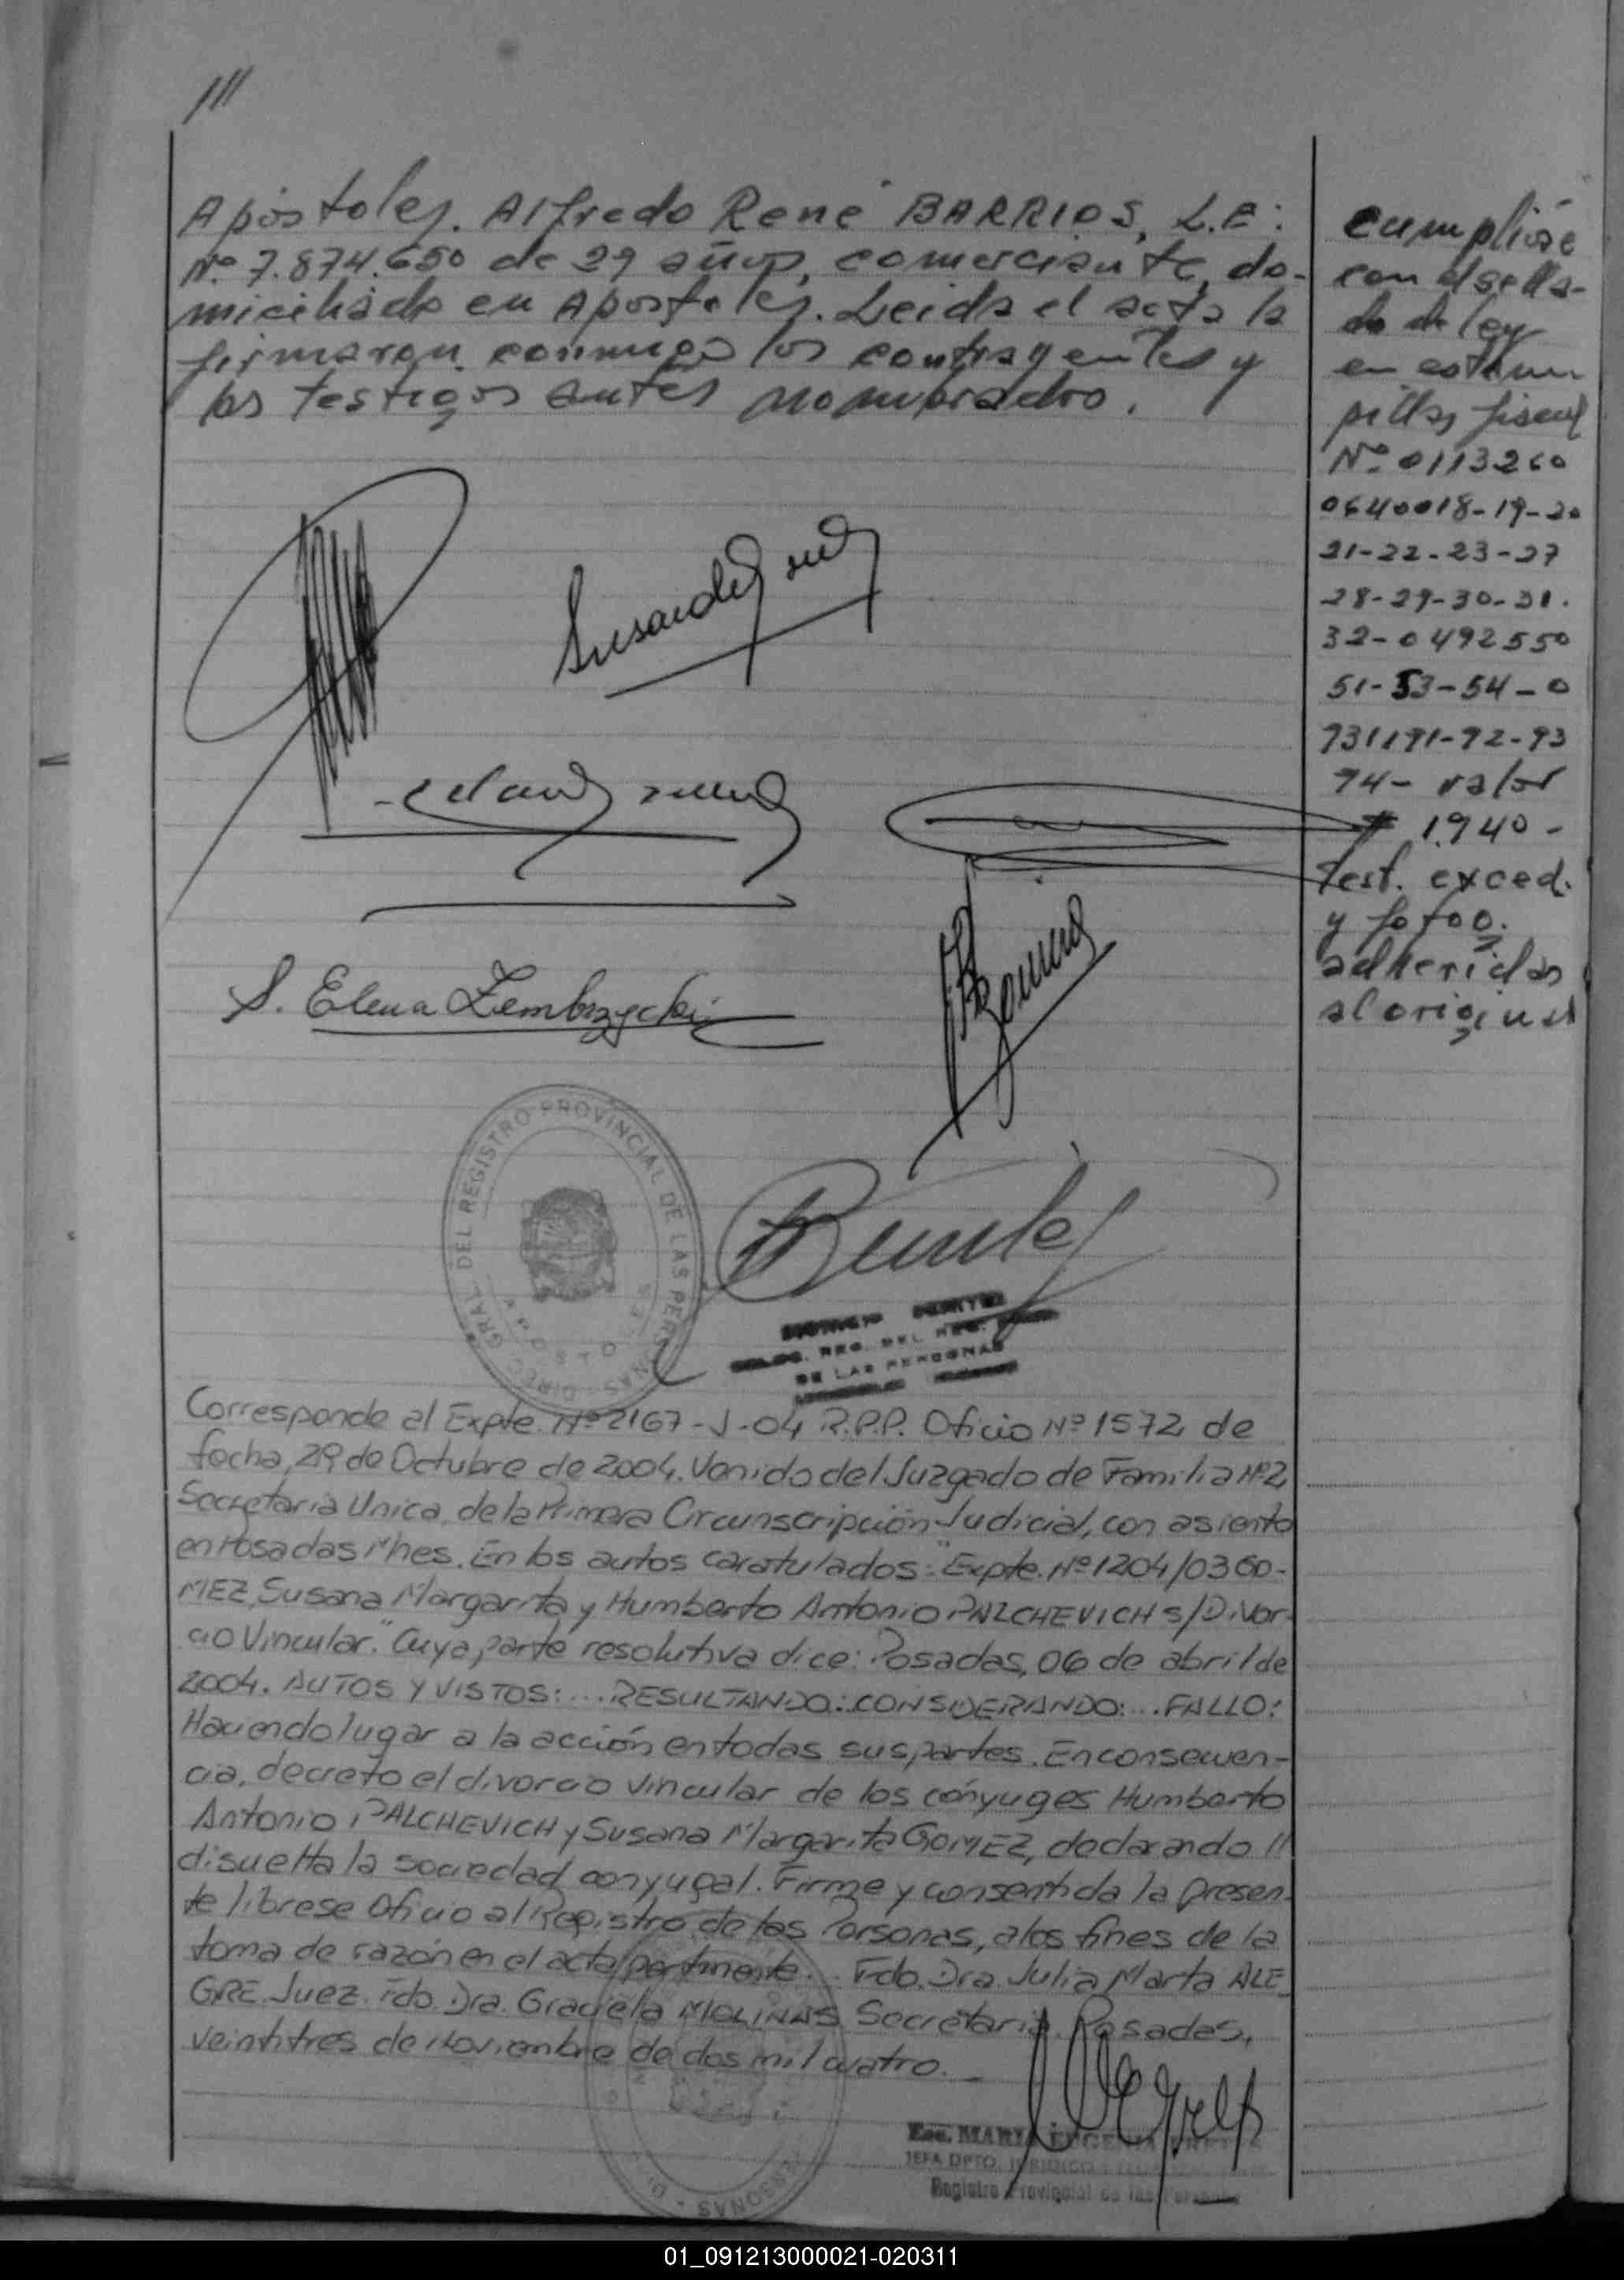 Apóstoles. Alfredo René BARRIOS, L.E:
Nº 7.874.650 de 29 años, comerciante, do-
miciliado en Apóstoles. Leida el acta la
firmaron conmigo los contrayentes y
los testigos antes nombrados.
Cumplióse
con el sella-
do de ley
en estam
pillas fiscal
Nº 0113260
0640018-19-20
21-22-23-27
28-29-30-31.
32-0492550
51-53-54-0
731191-92-93
94- valor
$ 1.940-
Test. exced.
y fotoc.
adheridas
al original
S. Elena Zembrzycki
DIREC. GRAL. DEL REGISTRO PROVINCIAL DE LAS PERSONAS
APOSTOLES
DE LAS PERSONAS
Corresponde al Expte. Nº 2167-J-04 R.P.P. Oficio Nº 1572, de
fecha, 29 de Octubre de 2004. Venido del Juzgado de Familia Nº2
Secretaria Unica, de la Primera Circunscripción Judicial, con asiento
en Posadas Mnes. En los autos caratulados: "Expte. Nº 1204/03 GO-
MEZ, Susana Margarita y Humberto Antonio PALCHEVICH s/Divor-
cio Vincular." Cuya parte resolutiva dice: Posadas, 06 de abril de
2004. AUTOS Y VISTOS:... RESULTANDO:.. CONSIDERANDO:... FALLO:
Haciendo lugar a la acción en todas sus partes. En consecuen-
cia, decreto el divorcio vincular de los cónyuges Humberto
Antonio PALCHEVICH y Susana Margarita GOMEZ, declarando //
disuelta la sociedad conyugal. Firme y consentida la presen-
te librese Oficio al Registro de las Personas, a los fines de la
toma de razón en el acta pertinente... Fdo. Dra. Julia Marta ALE
GRE Juez. Fdo. Dra. Graciela MOLINAS Secretaria. Posadas,
veintitres de Noviembre de dos mil cuatro.-
Esc. MARIA EUGENIA
JEFA DPTO. JURIDICO
Registro Provincial de las Personas
01_091213000021-020311